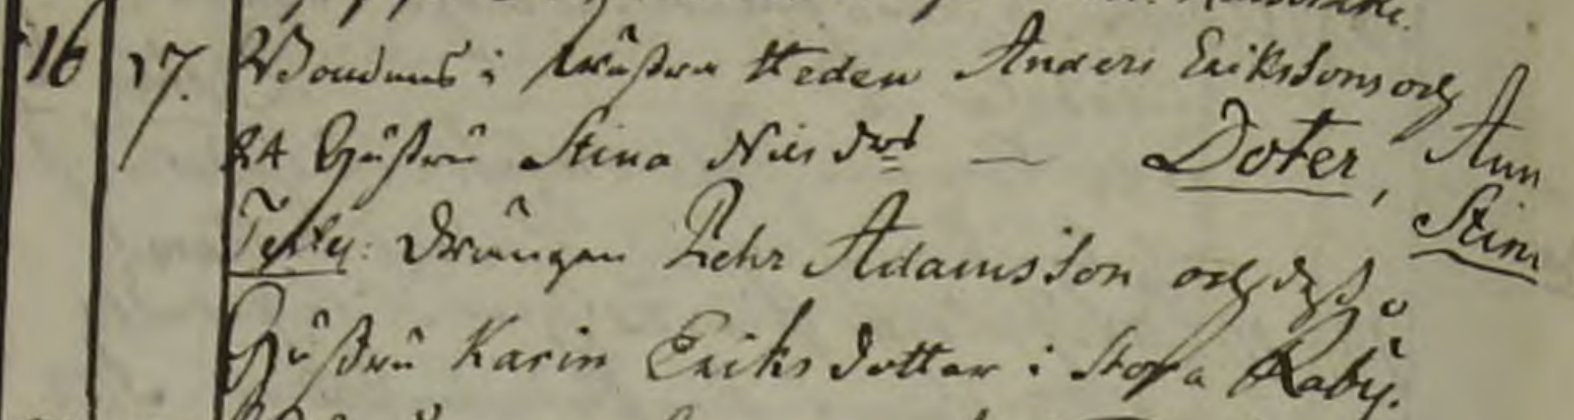 16 17. Bondens i Wästra Heden Anders Erikssons och
24 Hustru Stina Nils dotr — Doter, Ann
Stin
Test: Drängen Pehr Adamsson och dess
Hustru Karin Eriks dotter i Stora Råby.